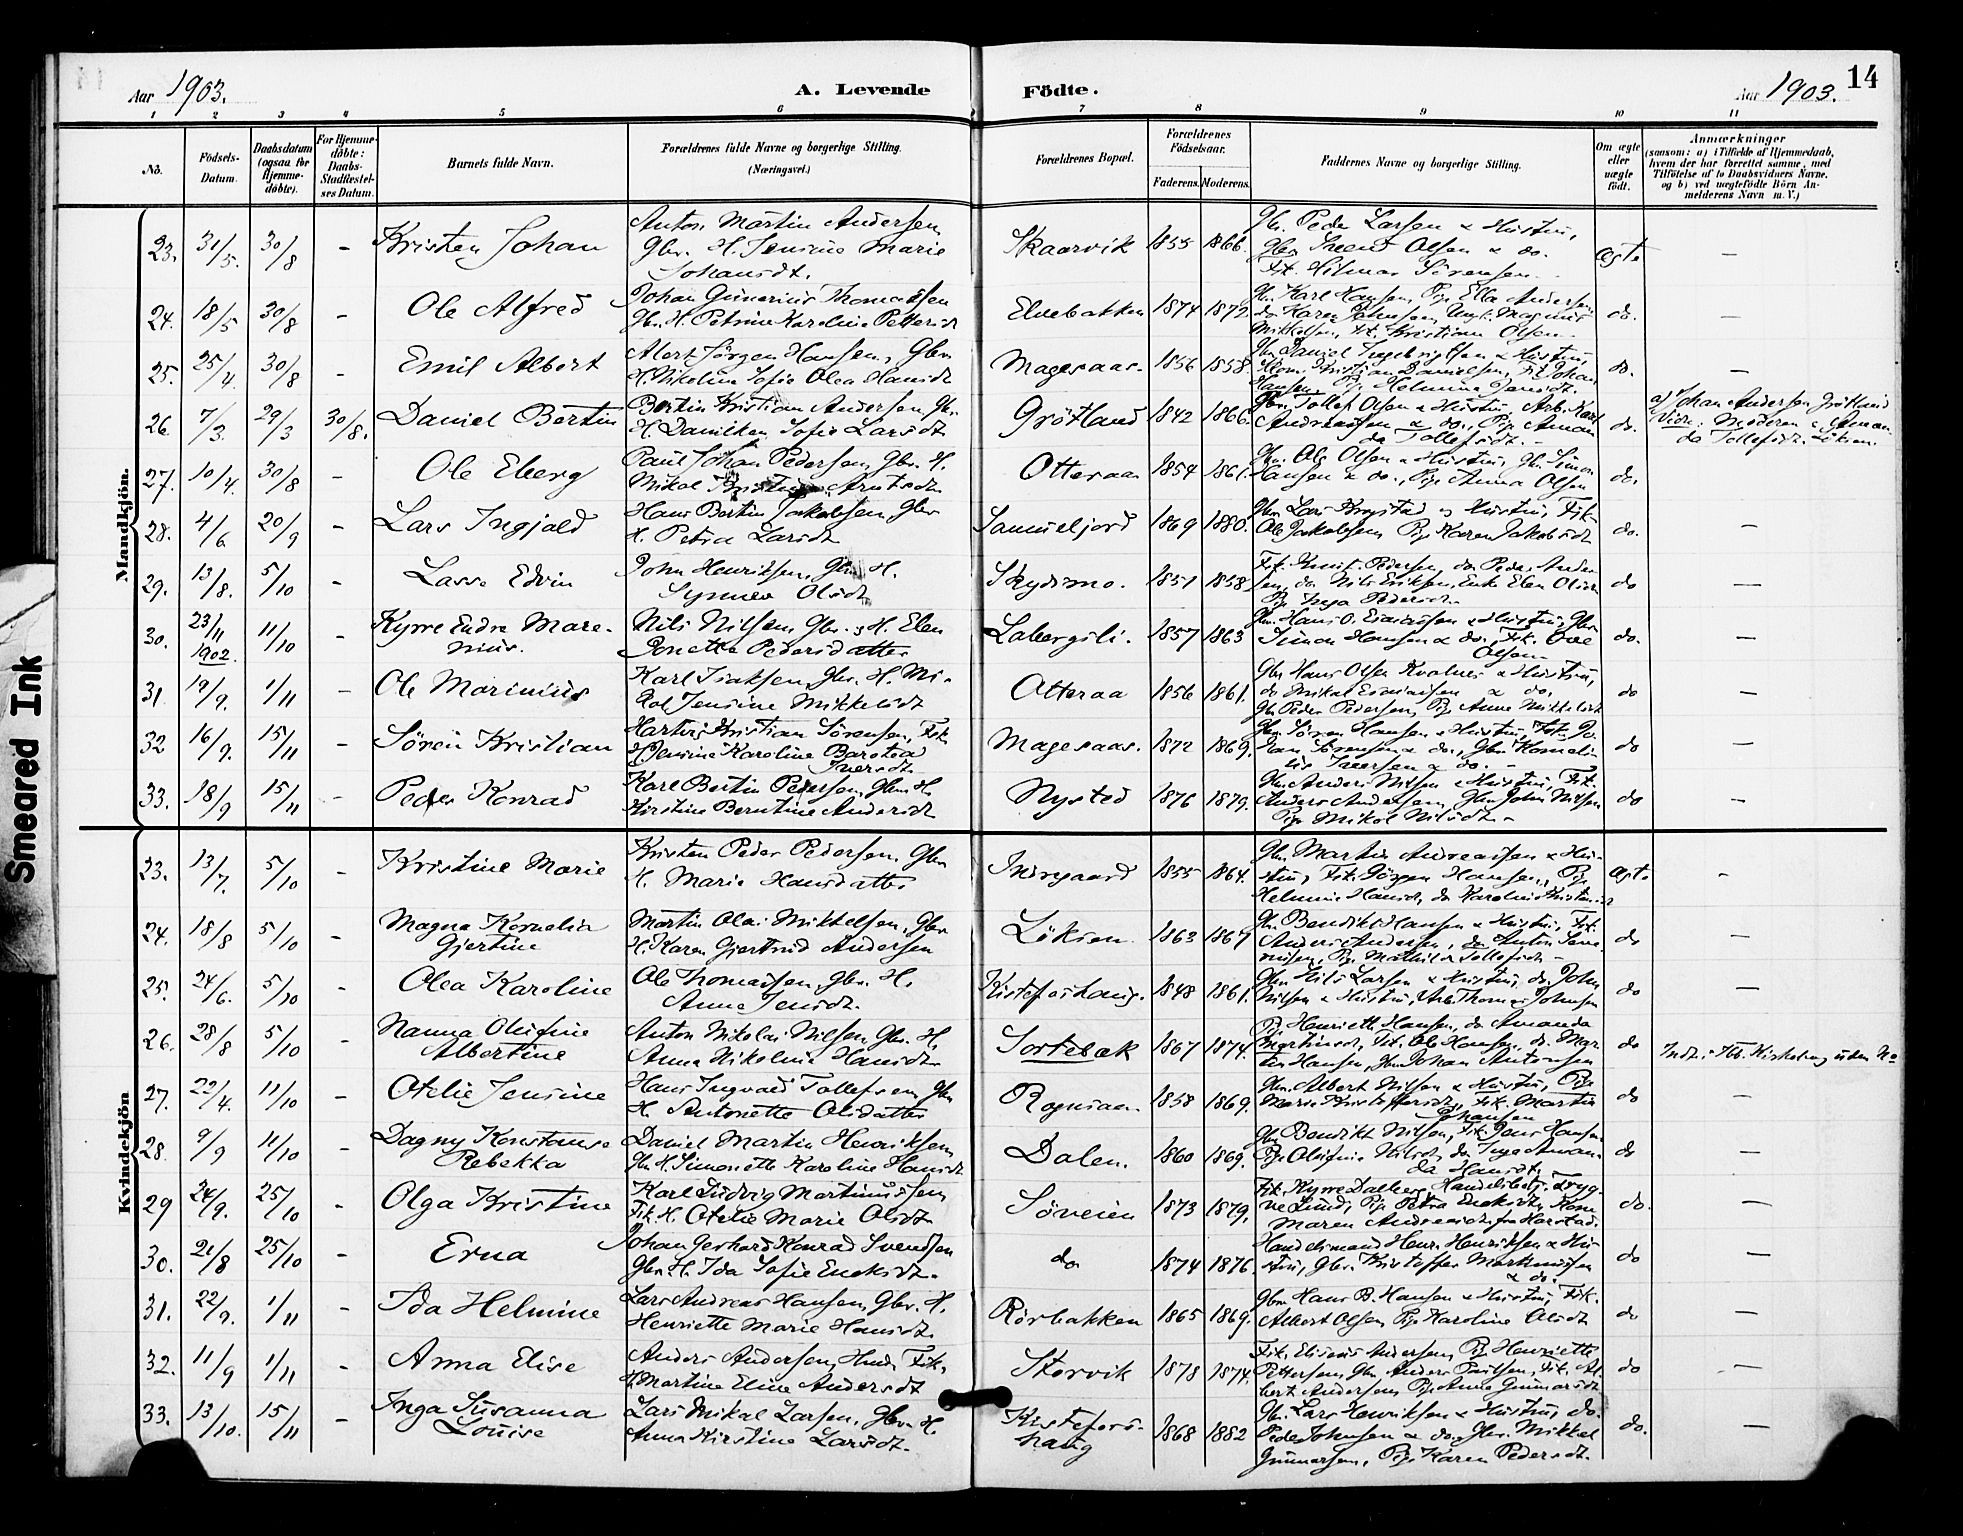 Aar 1903.
A. Levende
Födte.
Aar 1903.
14
1 2 3 4 5 6 7 8 9 10 11
No.
Födsels-
Datum.
Daabsdatum
(ogsaa for
Hjemme-
döbte).
For Hjemme-
döbte:
Daabs-
Stadfæstel-
ses Datum.
Barnets fulde Navn.
Forældrenes fulde Navne og borgerlige Stilling.
(Næringsvei.)
Forældrenes Bopæl.
Forældrenes
Födselsaar.
Faderens. Moderens.
Faddernes Navne og borgerlige Stilling.
Om ægte
eller
uægte
födt.
Anmærkninger
(saasom: a) i Tilfælde af Hjemmedaab,
hvem der har forrettet samme, med
Tilföielse af to Daabsvidners Navne,
og b) ved uægtefödte Börn An-
melderens Navn m. V.)
Mandkjön.
23. 31/5. 30/8 - Kristen Johan
Anton Martin Andersen
Gbr. H. Jensine Marie
Johansdt.
Skaarvik 1855 1866.
Gbr. Peder Larsen & Hustru,
Gbr. Olsen & do.
Fik. Hilmar Sörensen
Ægte —
24. 18/5 30/8 - Ole Alfred
Johan Gunerius Thomassen
Gbr. H. Petrine Karoline Pettersdt
Elvebakken 1874 1872.
Gbr. Karl Hansen, Pige Ella Andersen
do Karen Johnsen, Ungk. Magnus
Mikkelsen, Fik. Kristian Olsen
do. —
25. 25/4. 30/8 - Emil Albert
Jörgen Hansen, Gbr
H. Nikoline Sofie Olea Hansdt
Magesaas. 1856 1858.
Gbr Daniel Ingebrigtsen & Hustru,
Kristian Danielsen, Fik Johan
Hansen, Pige Helmine Jensdt.
do. —
26. 7/3. 29/3 30/8. Daniel Bertin
Bertin Kristian Andersen, Gbr.
H. Danikken Sofie Larsdt
Grötland 1842 1866.
Gbr. Tollef Olsen & Hustru, Arb. Karl
Andreassen & do., Pige Aman
da Tollefsdt. -
do.
a) Johan Andersen Grötland
Vidn: Moderen & Aman-
da Tollefsdt. Löksen.
27. 10/4. 30/8 - Ole Eberg
Paul Johan Pedersen, Gbr. H.
Mikal Arntsdt.
Otteraa 1854 1861.
Gbr. Ole Olsen & Hustru, Gbr. Simon
Hansen & do., Pige Anna Olsen
do.
28. 4/6. 20/9 - Lars Ingjald
Hans Bertin Jakobsen Gbr
H. Petra Larsdt
1869 1880.
Gbr. Lars Krogstad & Hustru, Fik.
Ole Jakobsen Pige Karen Jakobsdt
do. —
29. 13/8. 5/10 - Lasse Edvin
John Henriksen, Gbr. H.
Synnev Olsdt
Skydsmo. 1851 1858
Fik. Knut Pedersen, do Peder Ander
sen, do Nils Eriksen, Enke Elen Olsen
Pige Inga Pedersdt.
do —
30. 23/11 1902. 11/10 - Kyrre Endre Mare-
nius.
Nils Nilsen, Gbr. & H. Elen
Jonette Pedersdatter
Labergsli. 1857 1863
Gbr. Hans O. & Hustru, Gbr
Simon Hansen & do., Fik. Ove
Olsen
do. —
31. 19/9. 1/11 - Ole Marinius
Karl Isaksen, Gbr. H. Mi-
kal Jensine Mikkelsdt
Otteraa 1856 1861.
Gbr Hans Olsen Kvalnes & Hustru,
do Mikal & do.
Gbr Peder Pedersen, Pige Anne Mikkelsdt
do —
32 16/9. 15/11 - Sören Kristian
Hartvig Kristian Sörensen, Fik.
H. Jensine Karoline Barstea
Iversdt.
Magesaas. 1872 1869.
Gbr. Sören Hansen & Hustru, Fik. Jo
han Sörensen & do., Gbr. Korneli-
us & do. -
do —
33. 18/9 15/11 - Peder Konrad
Karl Bertin Pedersen, Gbr. H.
Kirstine Berntine Andersdt
Nysted 1876 1879.
Gbr. Anders Nilsen & Hustru, Fik.
Anders Andersen, Gbr. John Nilsen
Pige Mikal Nilsdt -
do —
Kvindekjön
23. 13/7. 5/10 - Kristine Marie
Kristen Peder Pedersen, Gbr
H. Marie Hansdatter
Indregaard 1855 1864.
Gbr. Martin Andreassen & Hus-
tru, Fik. Jörgen Hansen, Pige
Helmine Hansdt, do Karoline
Ægte -
24. 18/8 5/10 - Magna Kornelia
Gjertine
Martin Olai Mikkelsen, Gbr
H. Karen Gjertrud Andersen
Löksen 1863 1867
Gbr. Bendikt Hansen & Hustru, Fik.
Anders Andersen, do Anton
Pige Mathilde Tollefsdt -
do —
25. 24/6. 5/10 - Olea Karoline
Ole Thomassen, Gbr. H.
Anne Jensdt.
Kistefoshaug. 1848 1861.
Gbr. Nils Larsen & Hustru, do. John
Nilsen & Hustru, Arb. Thomas Johnsen
do —
26. 28/8 5/10 - Nanna Olufine
Albertine
Anton Nikolai Nilsen Gbr. H.
Anna Nikoline Hansdt.
Sortebæk 1867 1874.
Pige Henriette Hansen, do Amanda
Martinsdt, Fik. Ole Hansen, do. Mar
tin Hansen, Gbr. Johan Antonsen
do
27. 22/4. 11/10 - Otelie Jensine
Hans Ingvald Tollefsen, Gbr
H. Antonette Olsdatter
Rognsaa 1858 1869.
Gbr. Albert Nilsen & Hustru, Pige
Marie Kristoffersdt, Fik. Martin
Johansen
do —
28. 9/9 11/10 - Dagny Konstanse
Rebekka
Daniel Martin Henriksen
Gbr. H. Simonette Karoline Hansdt
Dalen. 1860 1869.
Gbr Bendikt Nilsen, Fik. Jens Hansen
Pige Olufine Nilsdt, do Inga Aman
da Hansdt
do —
29 24/9. 25/10 - Olga Kristine
Karl Ludvig Martinussen,
Fik. H. Otelie Marie Olsdt
Söveien 1873 1879.
Fik. Kyrre Dalberg, Handelsbetj. Tryg-
ve Lund, Pige Petra Enoksdt, Kone
Maren Andreasdt fra Harstad.
do. —
30. 21/8 25/10 - Erna
Johan Gerhard Konrad Svendsen
Gbr. H. Ida Sofie Enoksdt.
do 1874 1876.
Handelsmand Henr. Henriksen & Hus-
tru, Gbr. Kristoffer Markussen
& do.
do —
31. 22/9. 1/11 - Ida Helmine
Lars Andreas Hansen, Gbr. H.
Henriette Marie Hansdt.
Rörbakken 1865 1869.
Gbr. Hans B. Hansen & Hustru, Fik.
Albert Olsen, Pige Karoline Olsdt
do —
32. 11/9 1/11 - Anna Elise
Anders Andersen, Fik.
H. Martine Eline Andersdt
Storvik 1878 1874.
Fik. Eliseus Andersen, Pige Henriette
Pettersen, Gbr. Anders Paulsen, Fik. Al
bert Andersen, Pige Anne Gunnarsdt
do —
33. 13/10. 15/11 - Inga Susanna
Louise
Lars Mikal Larsen, Gbr. H.
Anna Kirstine Larsdt.
Kistefos-
haug 1868 1882
Gbr. Lars Henriksen & Hustru, do.
Peder Johnsen & do., Gbr. Mikkel
Gunnarsen, Pige Karen Pedersdt.
do. —
Smeared Ink